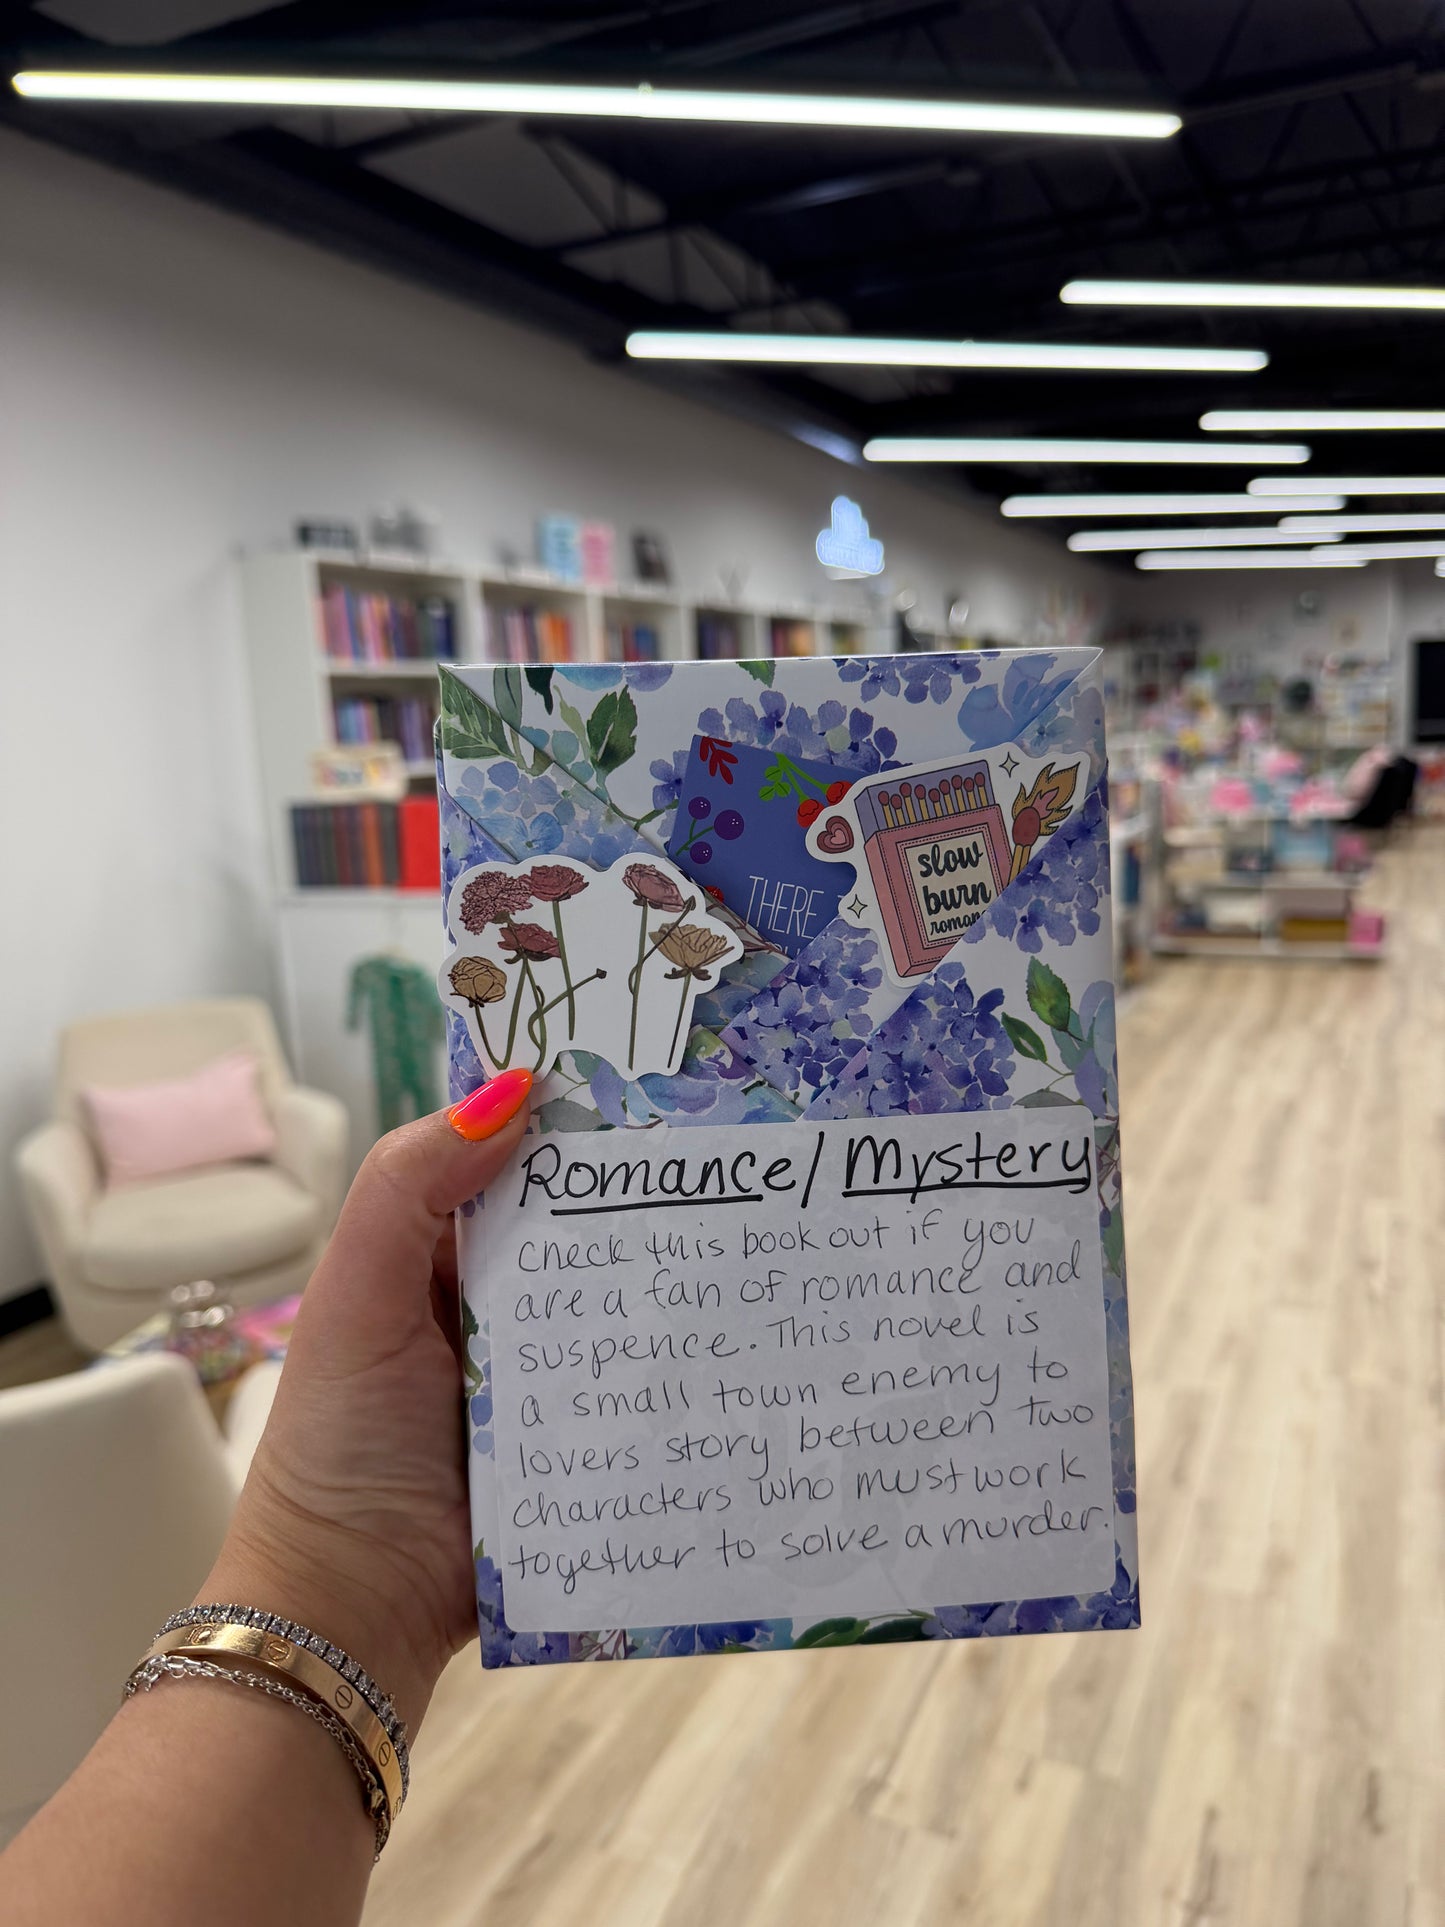 THERE
slow
burn
romance
Romance/Mystery
Check this book out if you
are a fan of romance and
suspence. This novel is
a small town enemy to
lovers story between two
characters who must work
together to solve a murder.